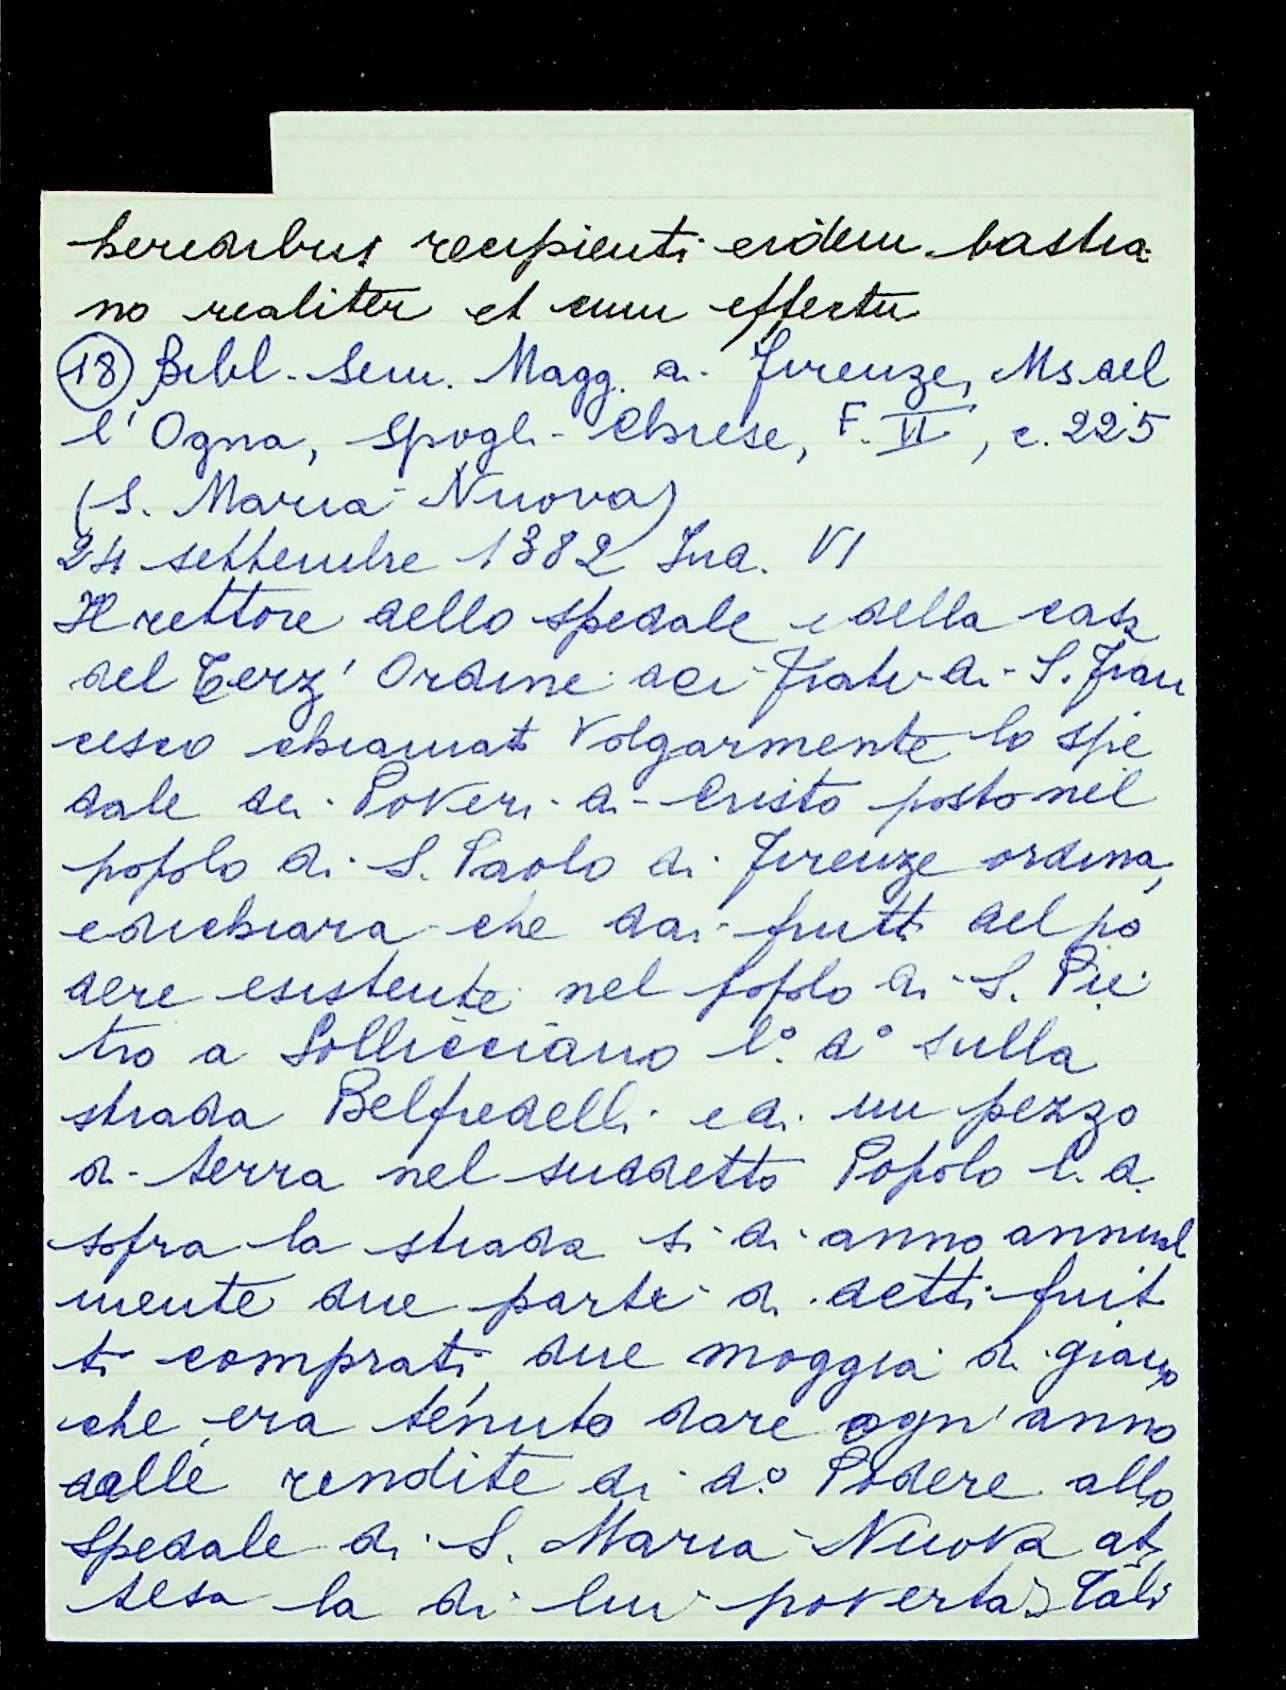 heredibus recipienti eidem bastia
no realiter et cum effectu
(18) Bibl. Sem. Magg. di Firenze, Ms. del
l'Ogna, Spogli Chiese, F. VI, c. 225
(S. Maria Nuova)
24 settembre 1382 Ind. VI
Il rettore dello spedale e della casa
del Terz'Ordine dei Frati di S. Fran
cesco chiamato Volgarmente lo spe
dale dei Poveri di Cristo posto nel
popolo di S. Paolo di Firenze ordina,
e dichiara che dai frutti del po
dere esistente nel popolo di S. Pie
tro a Sollicciano l.° d° sulla
strada Belfredelli e di un pezzo
di terra nel suddetto Popolo l. d.
sopra la strada si di anno annual
mente due parti di detti frut
ti comprati due moggia di grano
che era tenuto dare ogn'anno
dalle rendite di d.° Podere allo
Spedale di S. Maria Nuova at
tesa la di lui povertà Tali